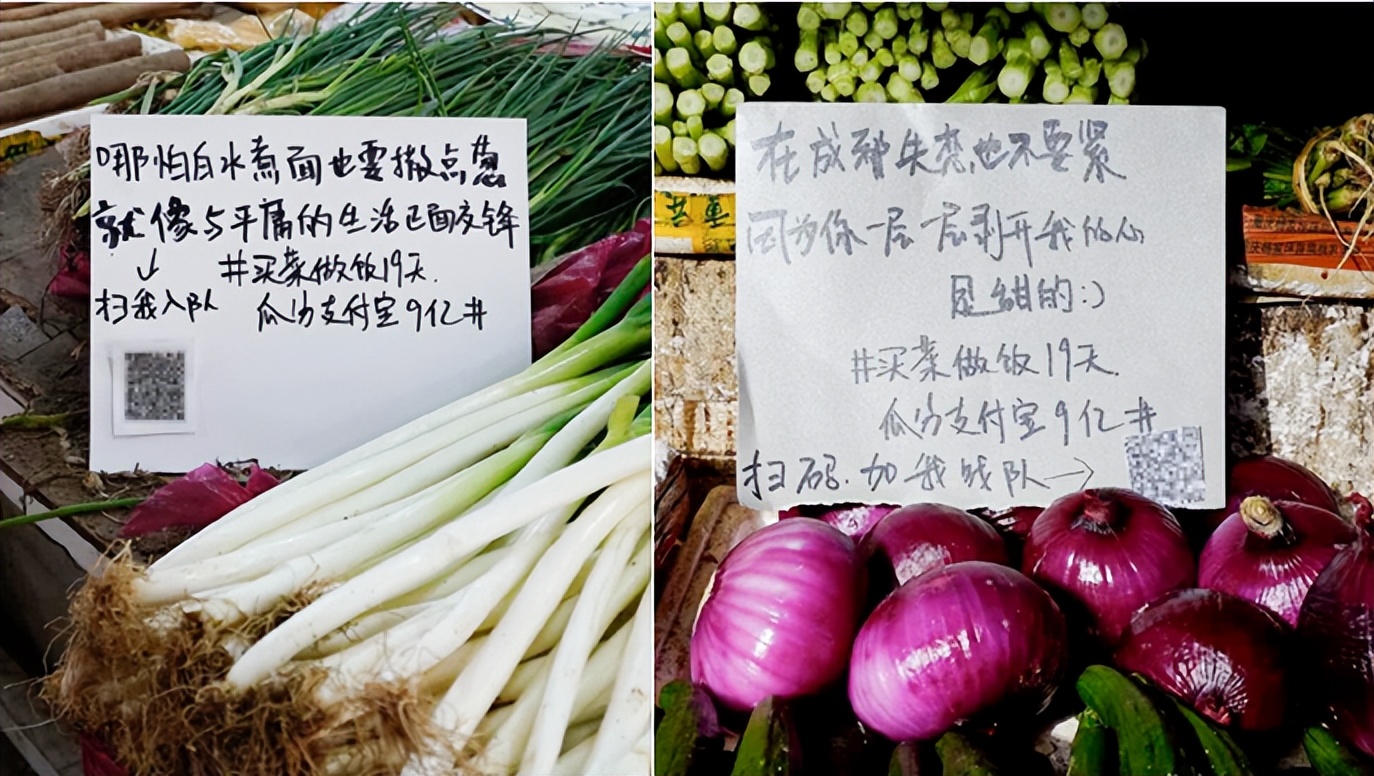 哪怕白水煮面也要撒点葱
就像与平庸的生活正面交锋
#买菜做饭19天
扫我入队 瓜分支付宝9亿#
在成都失恋也不要紧
因为你一层一层剥开我的心
是甜的:)
#买菜做饭19天
瓜分支付宝9亿#
扫码加我战队→